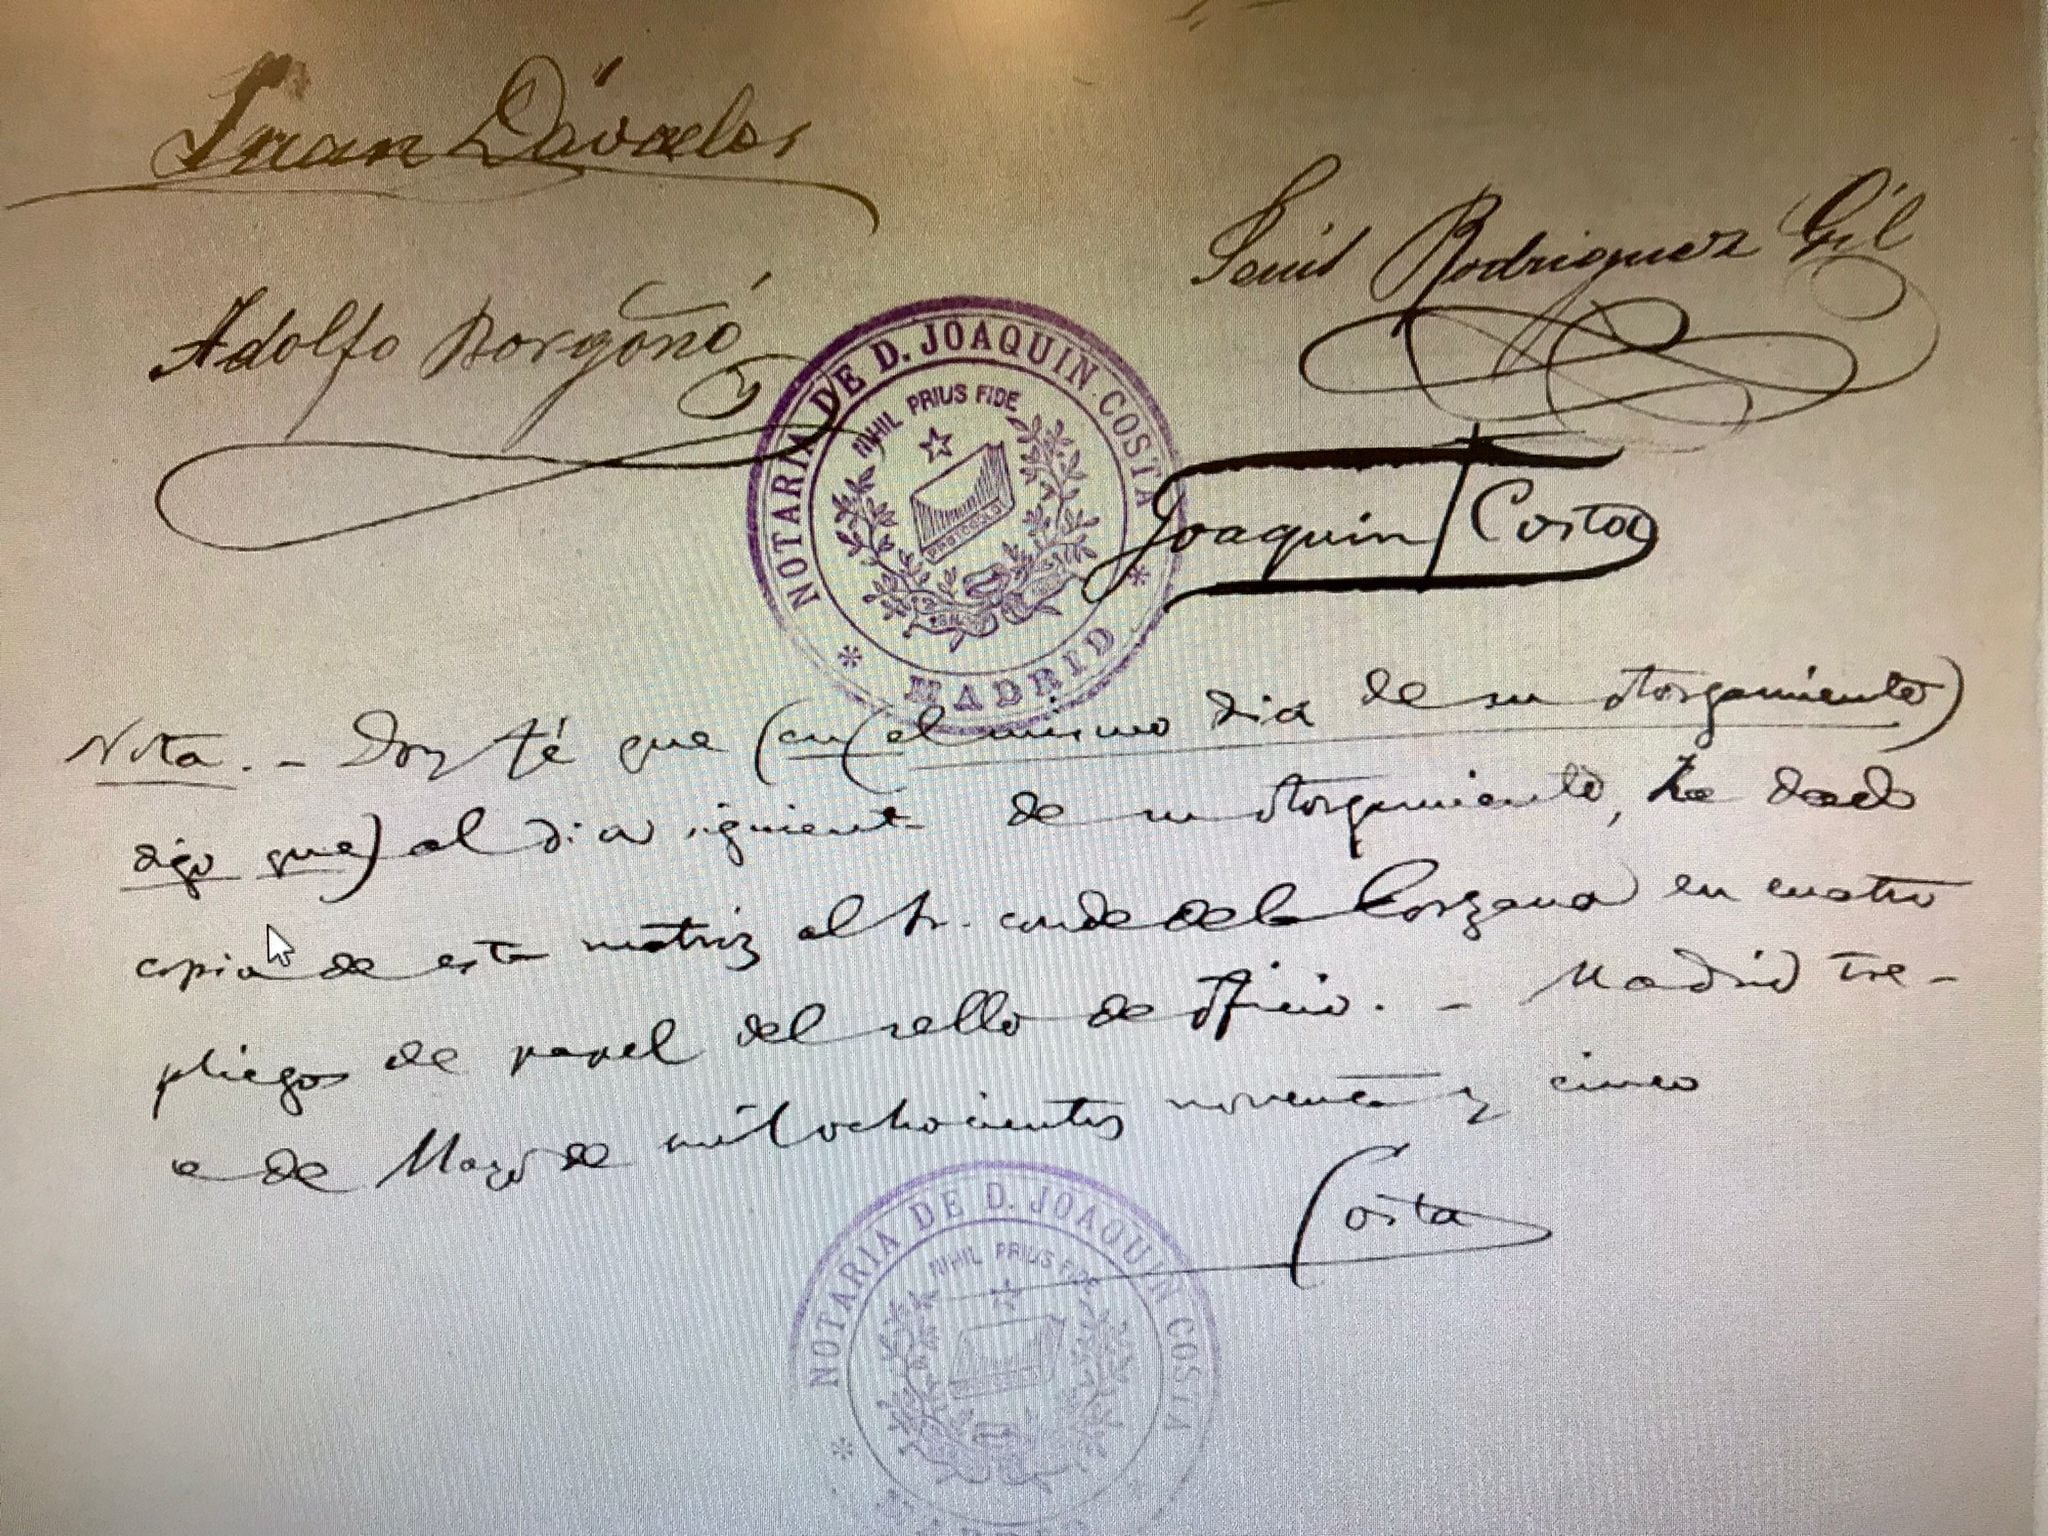 Juan Dávalos
Luis Rodriguez Gil
Adolfo Borgoñó
NOTARIA DE D. JOAQUIN COSTA
NIHIL PRIUS FIDE
PROTOCOLO
* MADRID *
Joaquin Costa
Nota. - Doy fé que (en (el mismo dia de su otorgamiento)
digo que) al dia siguiente de su otorgamiento, he dado
copia de esta matriz al Sr. conde de la Corzana en cuatro
pliegos de papel del sello de oficio. - Madrid tre-
e de Mayo de mil ochocientos noventa y cinco
Costa
NOTARIA DE D. JOAQUIN COSTA
NIHIL PRIUS FIDE
* MADRID *